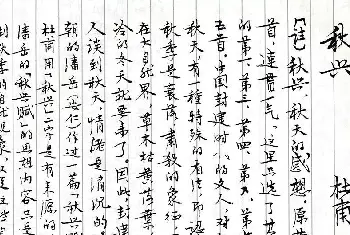 秋兴
杜甫
〔注〕秋兴:秋天的感想。原共
首,連貫一气,这里只选了其
的第一、第三、第四、第八、第
五首。中国封建时代的文人,对
秋天,有一種特殊的看法,即認
秋季是衰落、肃杀的象征
在大自然界,草木枯黄落葉
冷的冬天就要来了。因此,封建
人谈到秋天,情绪是消沉的。
朝的潘岳(安仁)作过一篇「秋兴
杜甫用「秋兴」二字是有来源的
潘岳的「秋兴赋」的思想内容只是
到秋季的自然現象